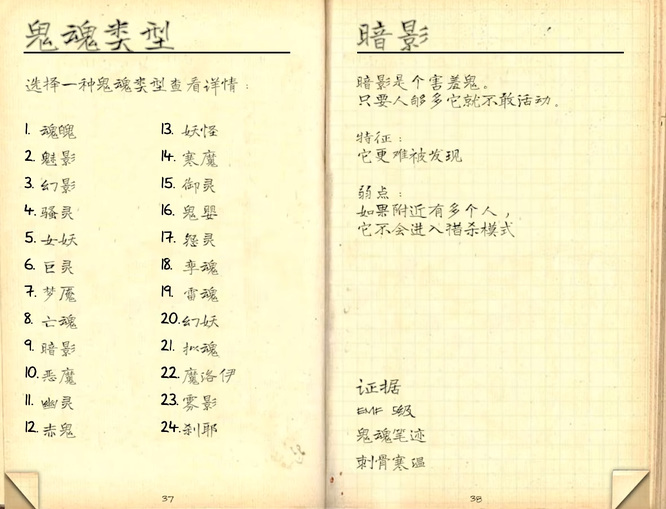 鬼魂类型
选择一种鬼魂类型查看详情：
1. 魂魄
2. 魅影
3. 幻影
4. 骚灵
5. 女妖
6. 巨灵
7. 梦魇
8. 亡魂
9. 暗影
10. 恶魔
11. 幽灵
12. 赤鬼
13. 妖怪
14. 寒魔
15. 御灵
16. 鬼婴
17. 怨灵
18. 孪魂
19. 雷魂
20. 幻妖
21. 拟魂
22. 魔洛伊
23. 雾影
24. 刹耶
37
暗影
暗影是个害羞鬼。
只要人够多它就不敢活动。
特征：
它更难被发现
弱点：
如果附近有多个人，
它不会进入猎杀模式
证据
EMF 5级
鬼魂笔迹
刺骨寒温
38